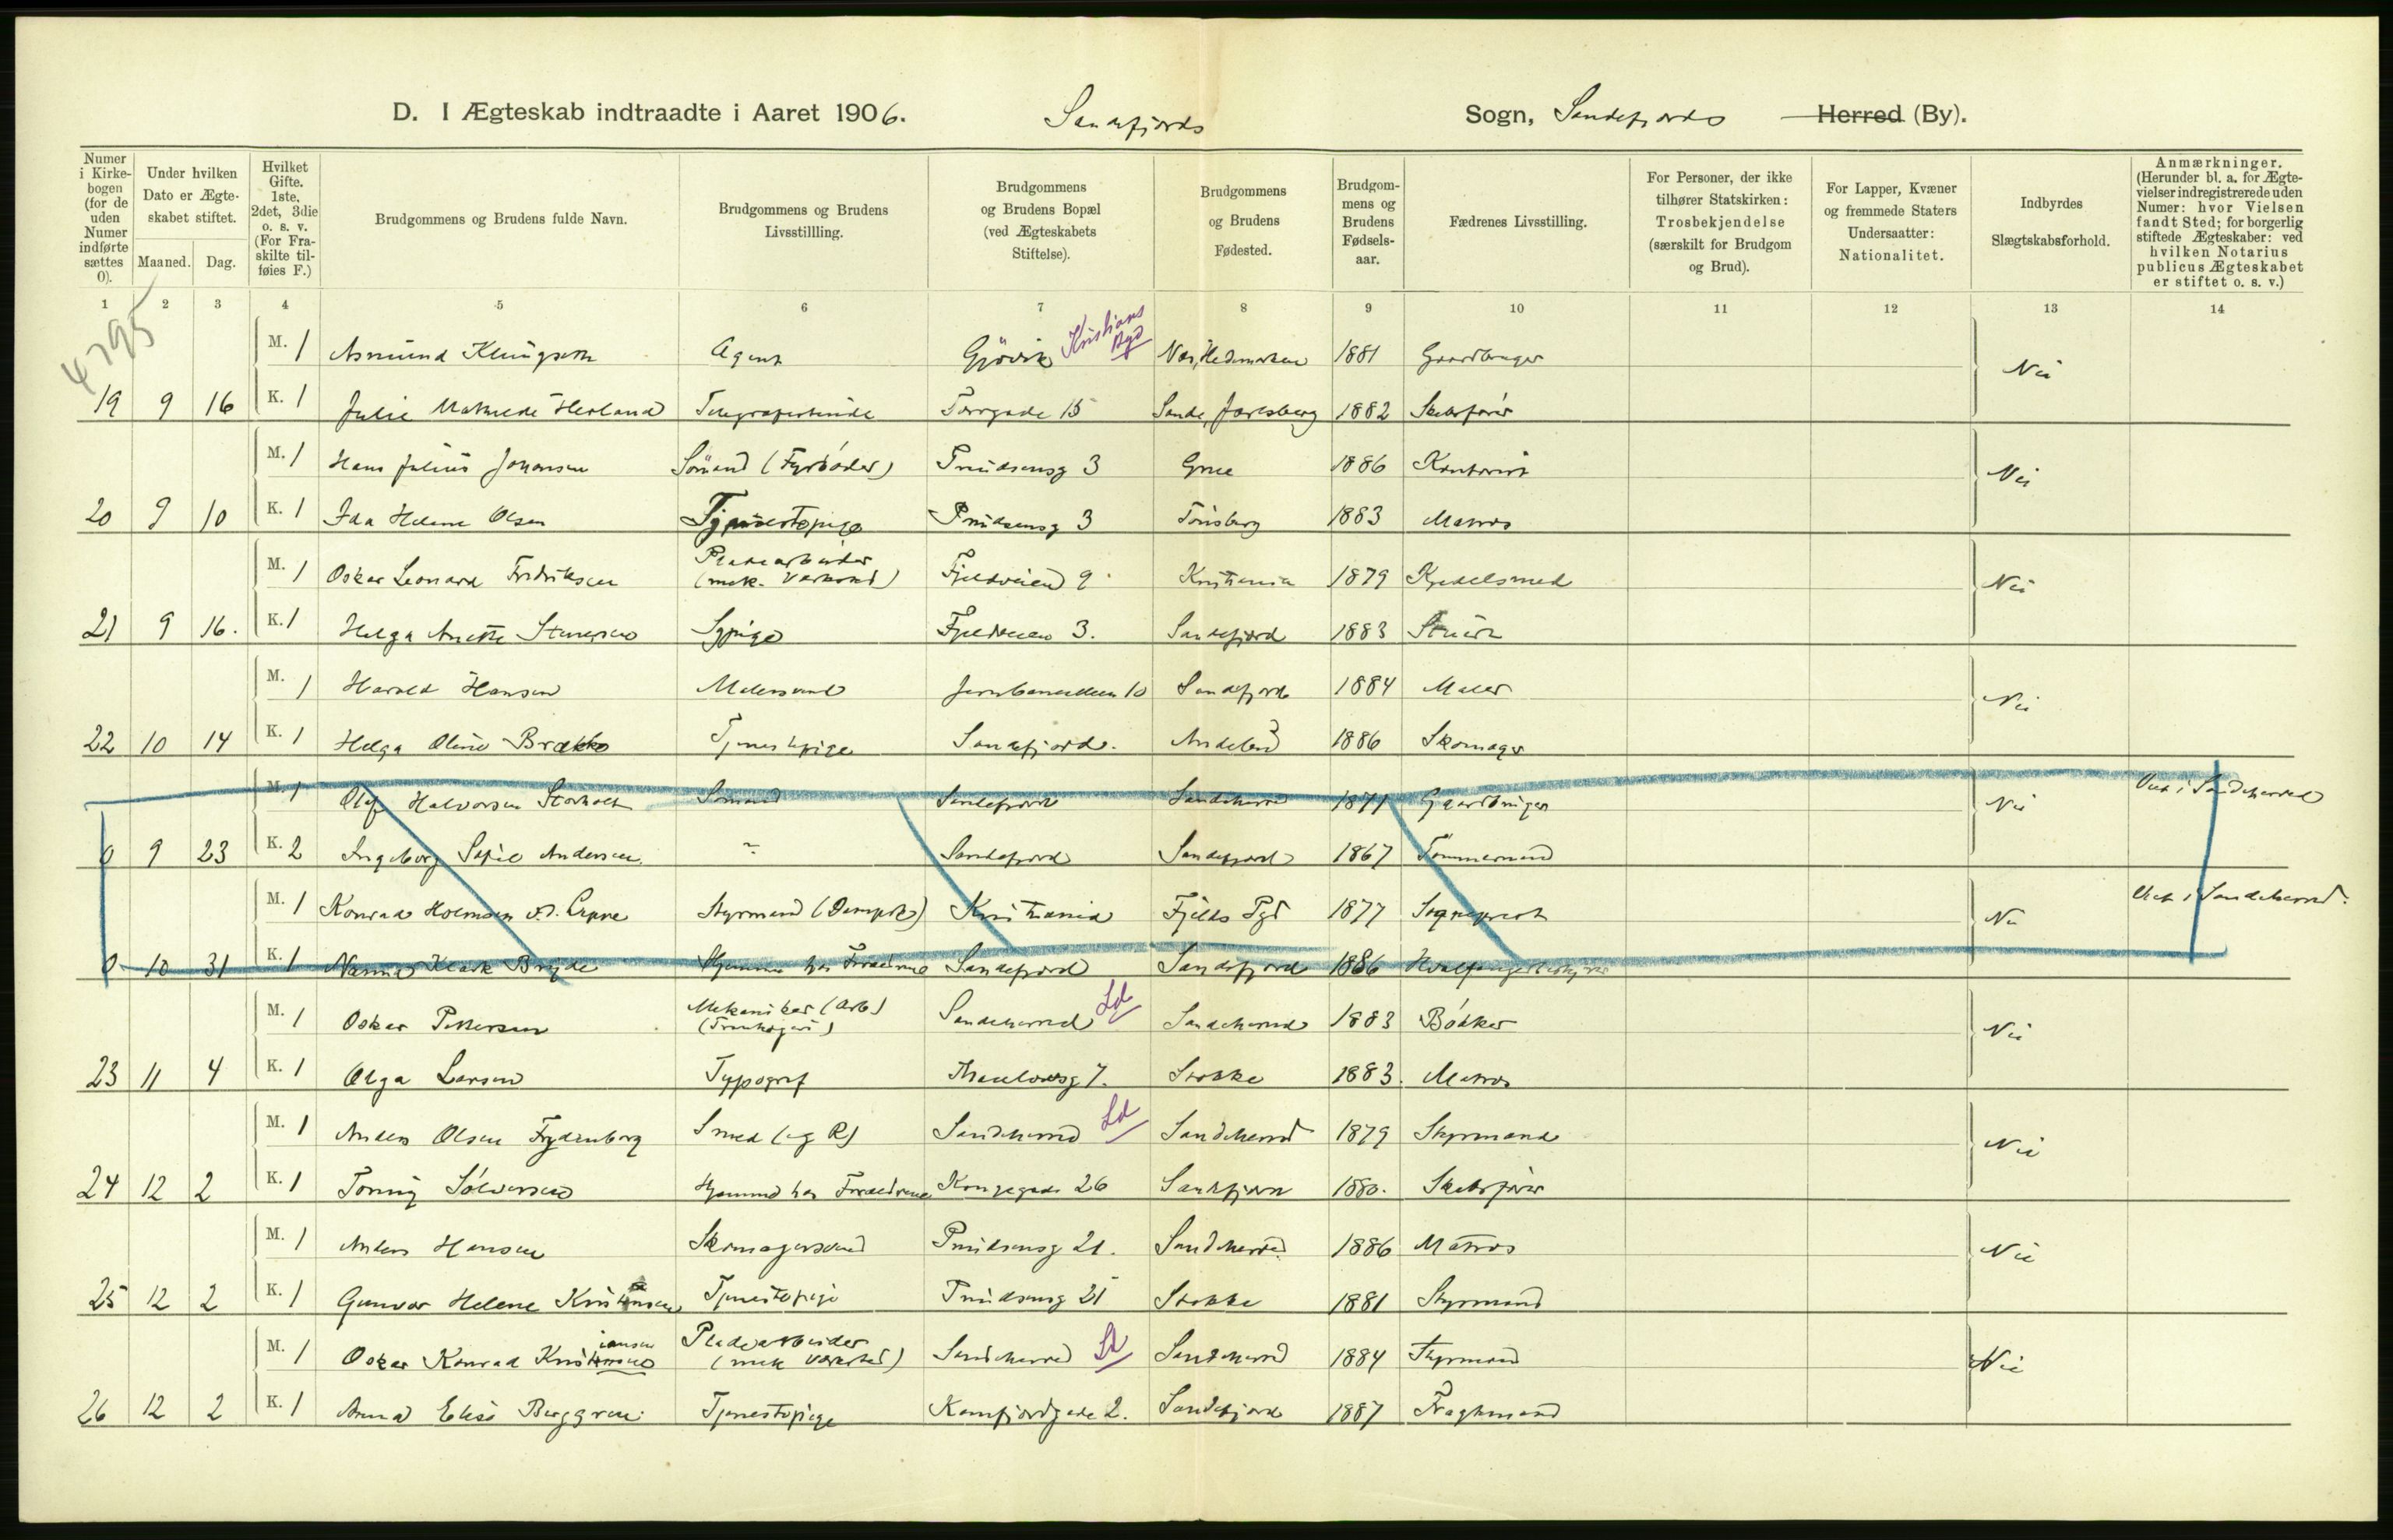 D. I Ægteskab indtraadte i Aaret 1906. Sandefjords Sogn, Sandefjords Herred (By).
Numer i Kirkebogen (for de uden Numer indførte sættes 0).
Under hvilken Dato er Ægteskabet stiftet.
Maaned. Dag.
Hvilket Gifte. 1ste, 2det, 3die o. s. v. (For Fraskilte tilføies F.)
Brudgommens og Brudens fulde Navn.
Brudgommens og Brudens Livsstillling.
Brudgommens og Brudens Bopæl (ved Ægteskabets Stiftelse).
Brudgommens og Brudens Fødested.
Brudgommens og Brudens Fødselsaar.
Fædrenes Livsstilling.
For Personer, der ikke tilhører Statskirken: Trosbekjendelse (særskilt for Brudgom og Brud).
For Lapper, Kvæner og fremmede Staters Undersaatter: Nationalitet.
Indbyrdes Slægtskabsforhold.
Anmærkninger. (Herunder bl. a. for Ægtevielser indregistrerede uden Numer: hvor Vielsen fandt Sted; for borgerlig stiftede Ægteskaber: ved hvilken Notarius publicus Ægteskabet er stiftet o. s. v.)
1 2 3 4 5 6 7 8 9 10 11 12 13 14
4795
M. 1 Agent Gjövik Kristians Nes, Hedemarken 1881 Gaardbruger Nei
19 9 16 K. 1 Julie Telegrafistinde Torvgade 15 Sande, Jarlsberg 1882 Skibsfører
M. 1 Hans Julius Johansen Sömand (Fyrböder) Prindsensg 3 Grue 1886 Kontorist Nei
20 9 10 K. 1 Ida Helene Olsen Tjenestepige Prindsensg 3 Tönsberg 1883 Matros
M. 1 Oskar Leonard Fredriksen Pladearbeider (mek. Værksted) Fjeldveien 9 Kristiania 1879 Kjedelsmed Nei
21 9 16. K. 1 Helga Anette Sypige Fjeldveien 3. Sandefjord 1883
M. 1 Harald Hansen Malersvend Jernbanealleen 10 Sandefjord 1884 Maler Nei
22 10 14 K. 1 Helga Oline Brække Tjenestepige Sandefjord. Andebu 1886 Skomager
M. 1 Olaf Halvorsen Storholt Sömand Sandefjord Sandeherred 1871 Gaardbruger Nei Viet i Sandeherred
0 9 23 K. 2 Ingeborg Sofie Andersen Sandefjord Sandefjord 1867 Tömmermand
M. 1 Konrad Holmsen v. d. Lippe Styrmand (Dampsk) Kristiania Fjelds Pgd 1877 Sogneprest Nei Viet i Sandeherred.
0 10 31 K. 1 Nanna Klark Bryde Hjemme hos Forældrene Sandefjord Sandefjord 1886
M. 1 Oskar Pettersen Mekaniker (Arb) Sandeherred Ld Sandeherred 1883 Bödker Nei
23 11 4 K. 1 Olga Larsen Typograf Thaulowsg 7. Stokke 1883. Matros
M. 1 Anders Olsen Frydenborg Smed (eg R) Sandeherred Ld Sandeherred 1879 Styrmand Nei
24 12 2 K. 1 Hjemme hos Forældrene Kongegade 26 Sandefjord 1880. Skibsfører
M. 1 Anders Hansen Skomagersvend Prindsensg 21. Sandeherred 1886 Matros Nei
25 12 2 K. 1 Gunvor Helene Kristiansen Tjenestepige Prindsensg 21 Stokke 1881 Styrmand
M. 1 Oskar Konrad Kristiansen Pladearbeider (mek Værksted) Sandeherred Ld Sandeherred 1884 Styrmand Nei
26 12 2 K. 1 Anna Elise Berggren Tjenestepige Kamfjordgade 2. Sandefjord 1887 Fragtmand